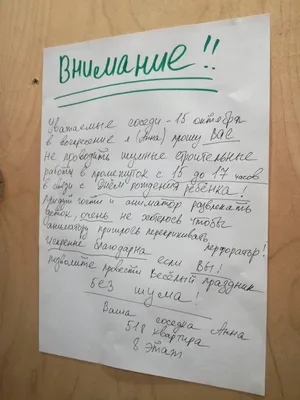 ВНИМАНИЕ!!
Уважаемые соседи - 15 октября
в воскресение я (Анна) прошу ВАС
не проводить шумные строительные
работы в промежуток с 15 до 17 часов
в связи с "Днём" рождения ребёнка!
Придут гости и аниматор развлекать
деток, очень не хотелось чтобы
аниматору пришлось перекрикивать
перфоратор!
Искренне благодарна если ВЫ!
позволите провести Весёлый праздник
БЕЗ шума!
Ваша соседка Анна
518 квартира
8 этаж